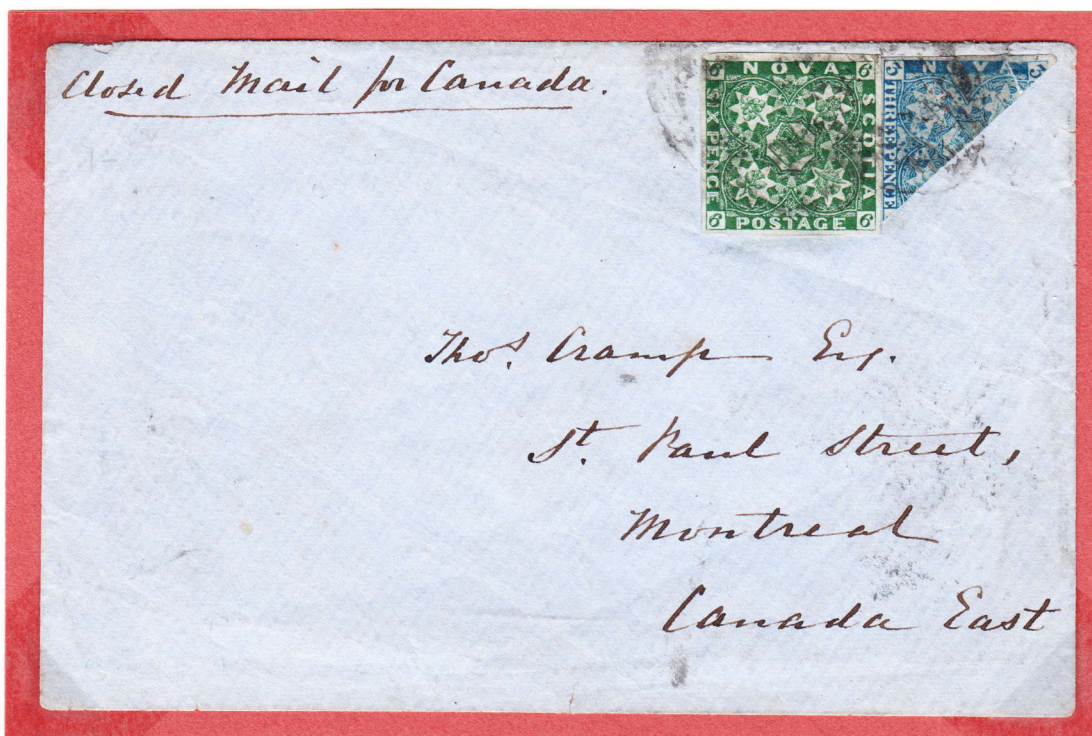 Closed Mail for Canada.
6 NOVA 6
SIX PENCE
SCOTIA
6 POSTAGE 6
NOVA
THREE PENCE
Thos. Cramp Esq.
St. Paul Street,
Montreal
Canada East